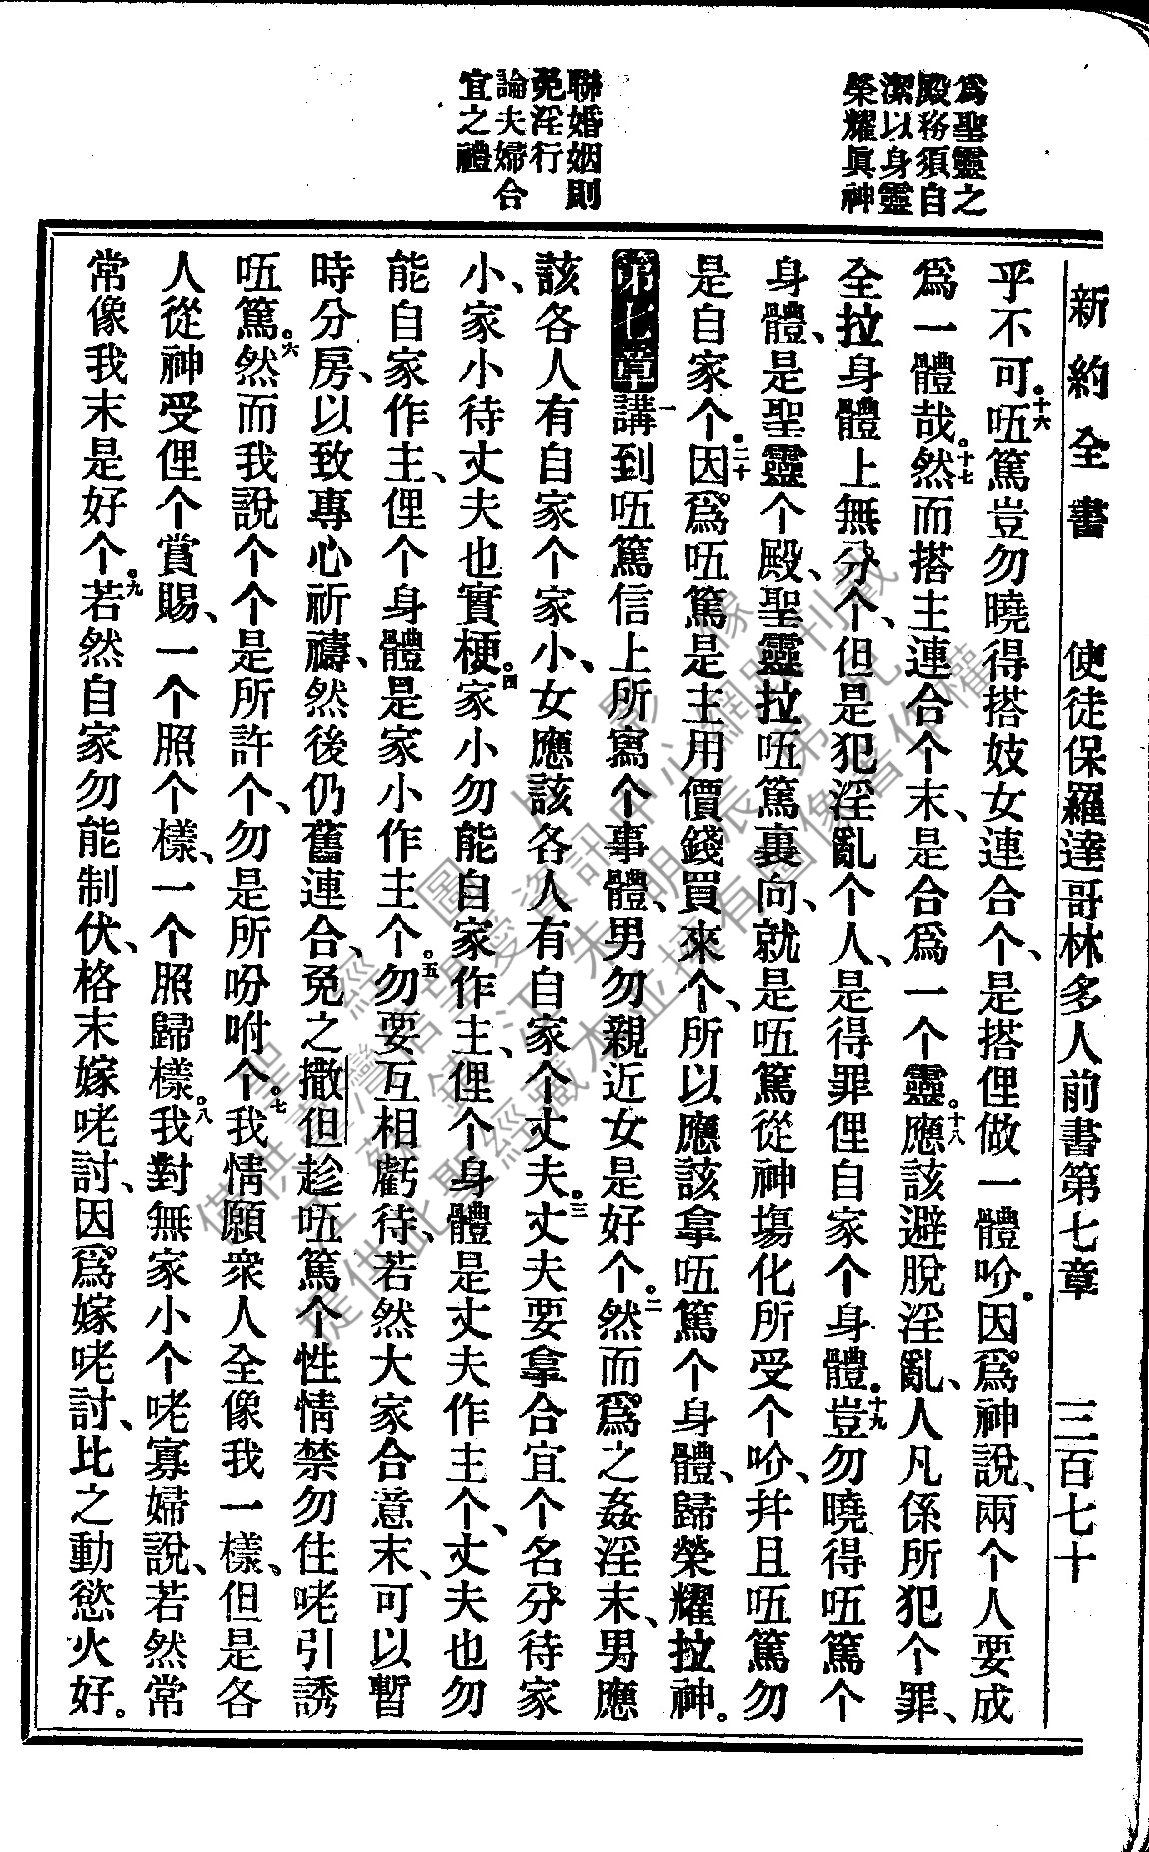 爲聖靈之
殿務須自
潔以身靈
榮耀眞神
聯婚姻則
免淫行
論夫婦合
宜之禮
新約全書　使徒保羅達哥林多人前書第七章　三百七十
乎不可。十六㕶篤豈勿曉得搭妓女連合个、是搭俚做一體吤。因爲神說、兩个人要成
爲一體哉。十七然而搭主連合个末、是合爲一个靈。十八應該避脫淫亂、人凡係所犯个罪、
全拉身體上無分个、但是犯淫亂个人、是得罪俚自家个身體。十九豈勿曉得㕶篤个
身體、是聖靈个殿、聖靈拉㕶篤裏向、就是㕶篤從神塲化所受个吤、幷且㕶篤勿
是自家个。二十因爲㕶篤是主用價錢買來个、所以應該拿㕶篤个身體、歸榮耀拉神。
第七章一講到㕶篤信上所寫个事體、男勿親近女是好个。二然而爲之姦淫末、男應
該各人有自家个家小、女應該各人有自家个丈夫。三丈夫要拿合宜个名分待家
小、家小待丈夫也實梗。四家小勿能自家作主、俚个身體是丈夫作主个、丈夫也勿
能自家作主、俚个身體是家小作主个。五勿要互相虧待、若然大家合意末、可以暫
時分房、以致專心祈禱、然後仍舊連合、免之撒但趁㕶篤个性情禁勿住咾引誘
㕶篤。六然而我說个个是所許个、勿是所吩咐个。七我情願衆人全像我一樣、但是各
人從神受俚个賞賜、一个照个樣、一个照歸樣。八我對無家小个咾寡婦說、若然常
常像我末是好个。九若然自家勿能制伏、格末嫁咾討、因爲嫁咾討、比之動慾火好。